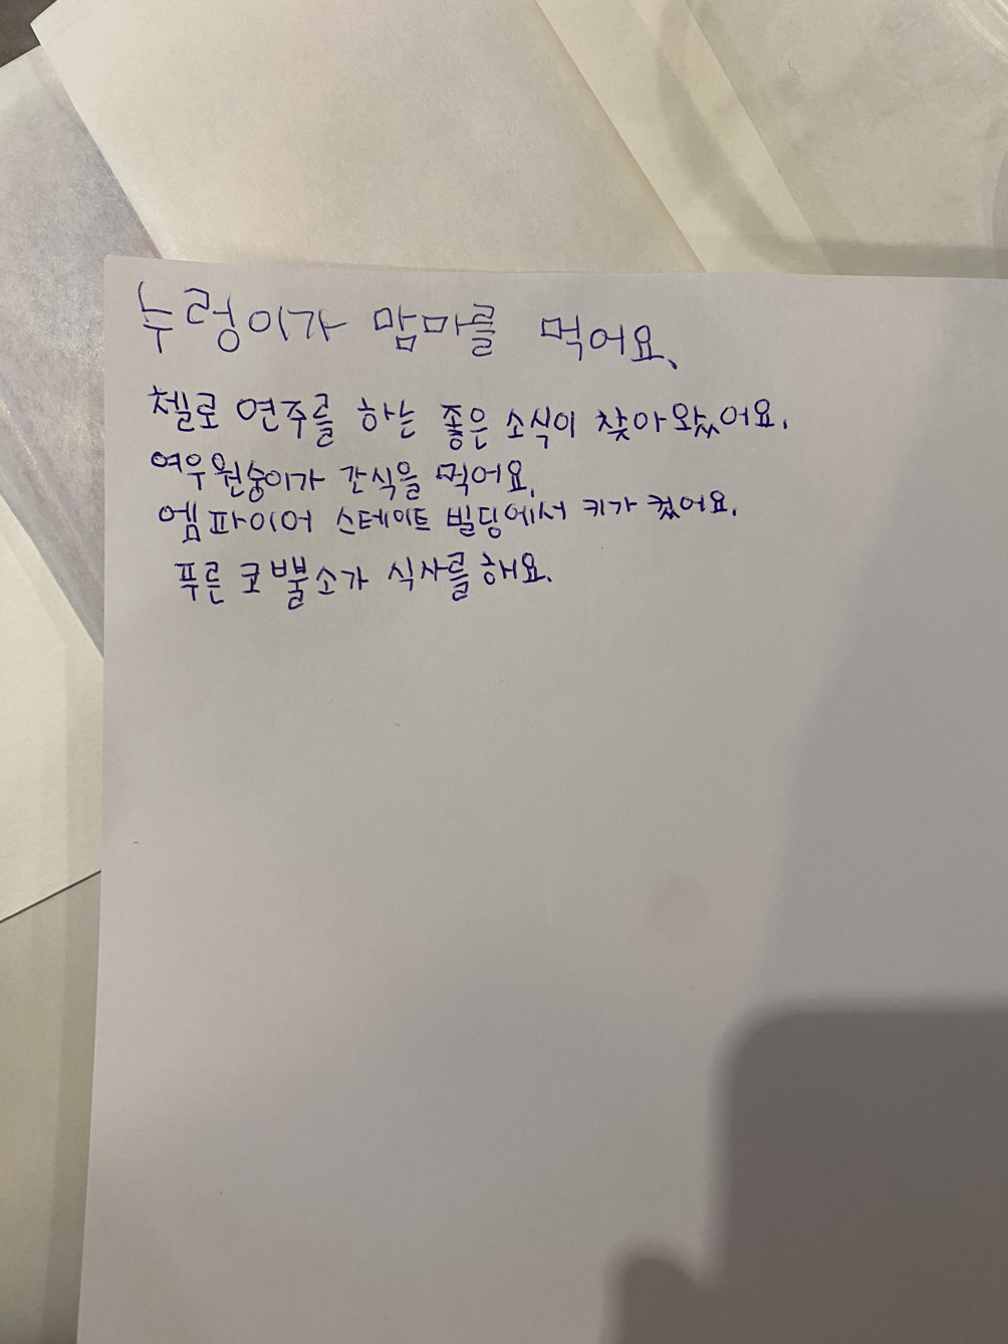 누렁이가 맘마를 먹어요.
첼로 연주를 하는 좋은 소식이 찾아왔어요.
여우원숭이가 간식을 먹어요.
엠파이어 스테이트 빌딩에서 키가 컸어요.
푸른 코뿔소가 식사를 해요.